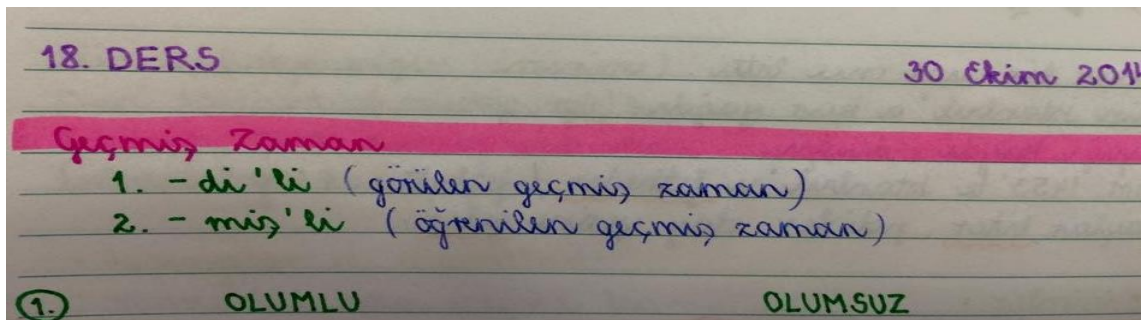 18. DERS
30 Ekim 2014
Geçmiş Zaman
1. -di'li (görülen geçmiş zaman)
2. -miş'li (öğrenilen geçmiş zaman)
1. OLUMLU OLUMSUZ